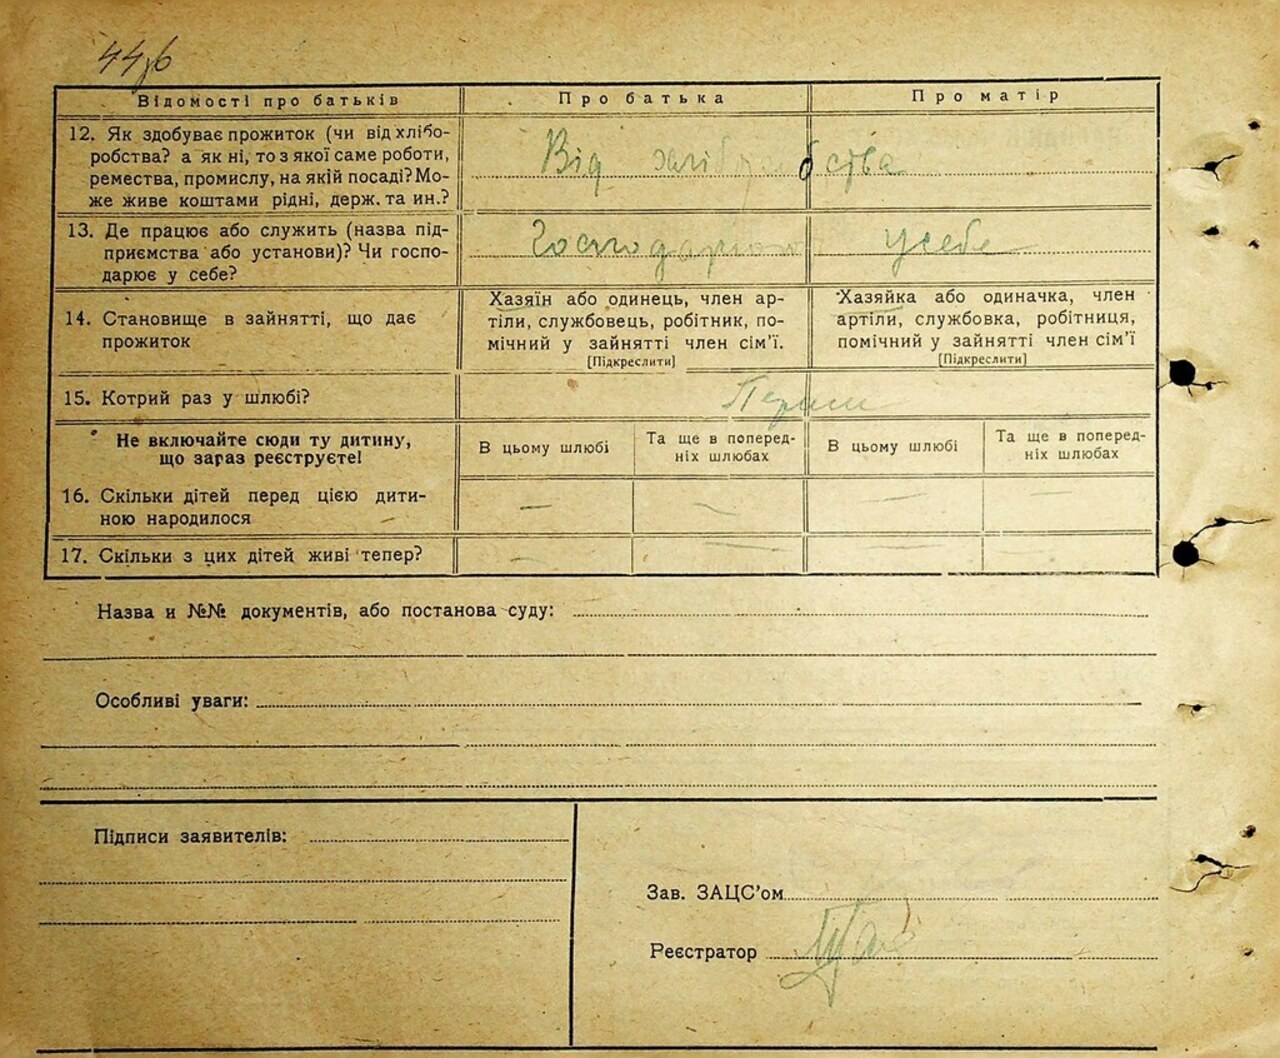 44зв
Відомості про батьків
Про батька
Про матір
12. Як здобуває прожиток (чи від хлібо-
робства? а як ні, то з якої саме роботи,
ремества, промислу, на якій посаді? Мо-
же живе коштами рідні, держ. та ин.?
Від хліборобства
13. Де працює або служить (назва під-
приємства або установи)? Чи госпо-
дарює у себе?
Господарюють у себе
14. Становище в зайнятті, що дає
прожиток
Хазяїн або одинець, член ар-
тіли, службовець, робітник, по-
мічний у зайнятті член сім'ї.
[Підкреслити]
Хазяйка або одиначка, член
артіли, службовка, робітниця,
помічний у зайнятті член сім'ї
[Підкреслити]
15. Котрий раз у шлюбі?
Не включайте сюди ту дитину,
що зараз реєструєте!
В цьому шлюбі
Та ще в поперед-
ніх шлюбах
В цьому шлюбі
Та ще в поперед-
ніх шлюбах
16. Скільки дітей перед цією дити-
ною народилося
— — — —
17. Скільки з цих дітей живі тепер?
— — — —
Назва и №№ документів, або постанова суду:
Особливі уваги:
Підписи заявителів:
Зав. ЗАЦС'ом
Реєстратор